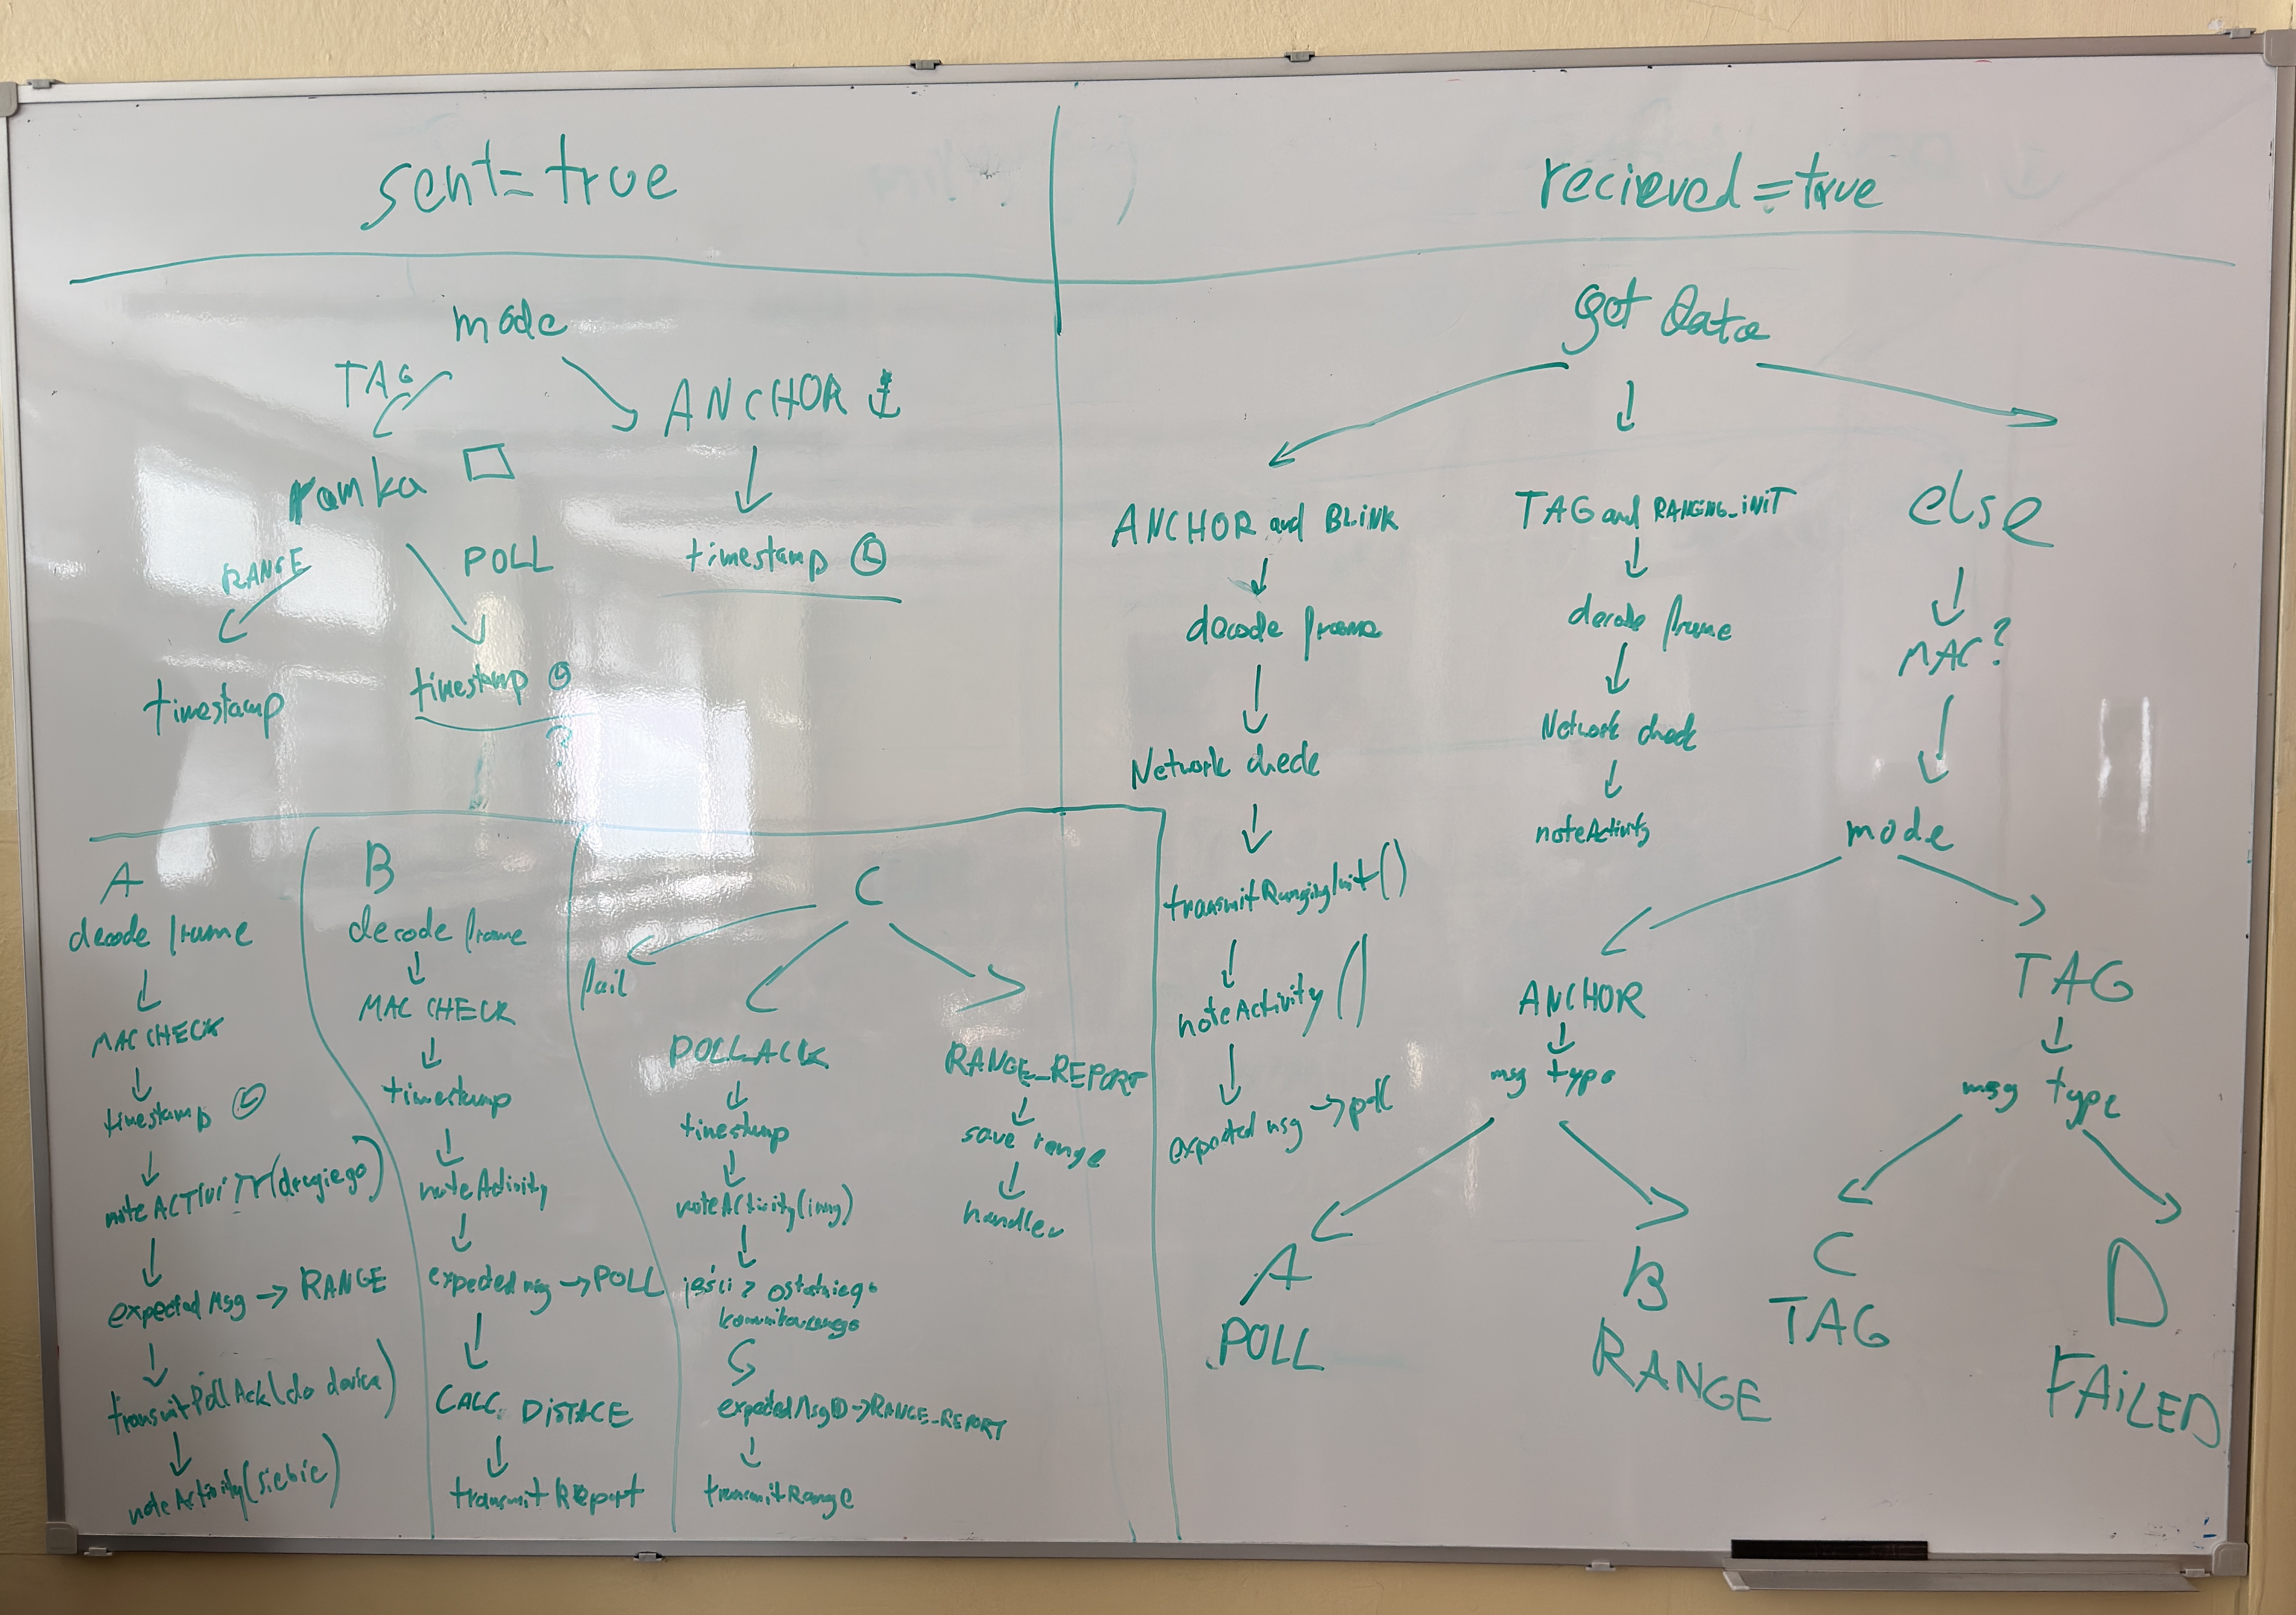 sent=true
mode
TAG
ANCHOR
ramka
RANGE
POLL
timestamp
timestamp
?
timestamp
recieved=true
get Data
ANCHOR and BLINK
decode frame
Network check
transmitRangingInit()
noteActivity()
expected msg → poll
TAG and RANGING_INIT
decode frame
Network check
noteActivity
else
MAC?
mode
ANCHOR
msg type
A
POLL
B
RANGE
TAG
msg type
C
TAG
D
FAILED
A
decode frame
MAC CHECK
timestamp
noteACTIVITY(drugiego)
expected Msg → RANGE
transmitPollAck(do device)
noteActivity(siebie)
B
decode frame
MAC CHECK
timestamp
noteActivity
expected msg → POLL
CALC. DISTACE
transmitReport
C
fail
POLL_ACK
timestamp
noteActivity(inny)
jeśli > ostatniego
expectedMsgID → RANGE_REPORT
transmitRange
RANGE_REPORT
save range
handler